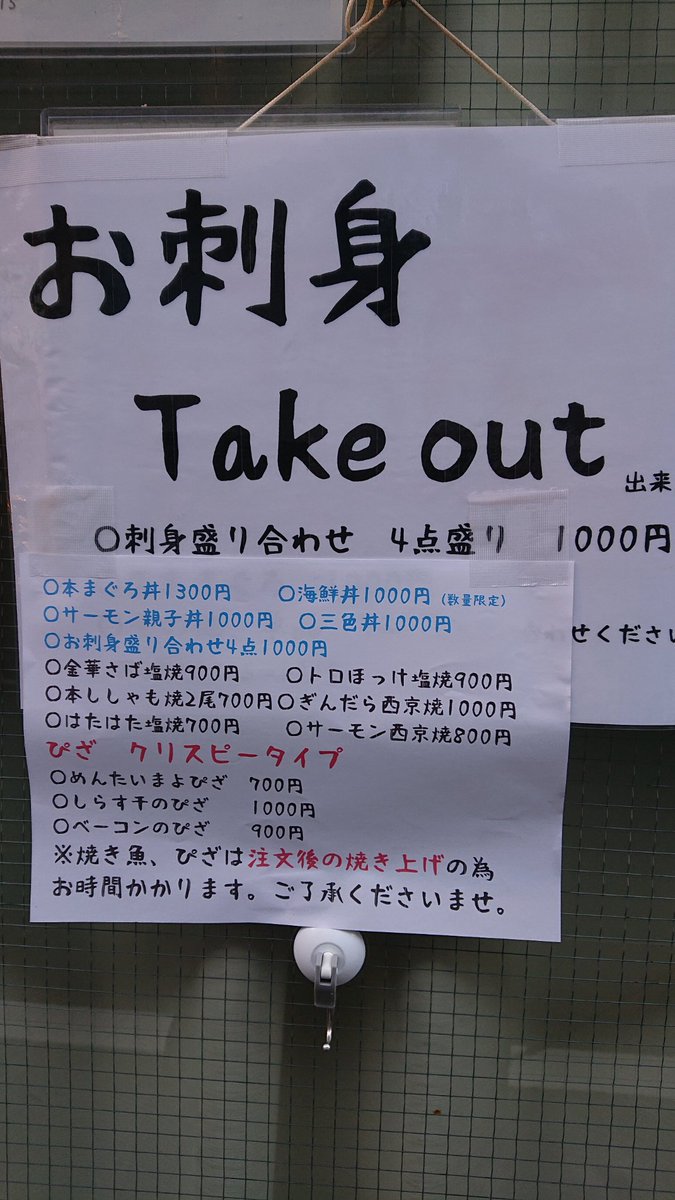 お刺身
Take out
出来
〇刺身盛り合わせ 4点盛り 1000円
〇本まぐろ丼1300円 〇海鮮丼1000円(数量限定)
〇サーモン親子丼1000円 〇三色丼1000円
〇お刺身盛り合わせ4点1000円
〇金華さば塩焼900円 〇トロほっけ塩焼900円
〇本ししゃも焼2尾700円〇ぎんだら西京焼1000円
〇はたはた塩焼700円 〇サーモン西京焼800円
せください
ぴざ クリスピータイプ
〇めんたいまよぴざ 700円
〇しらす干のぴざ 1000円
〇ベーコンのぴざ 900円
※焼き魚、ぴざは注文後の焼き上げの為
お時間かかります。ご了承くださいませ。